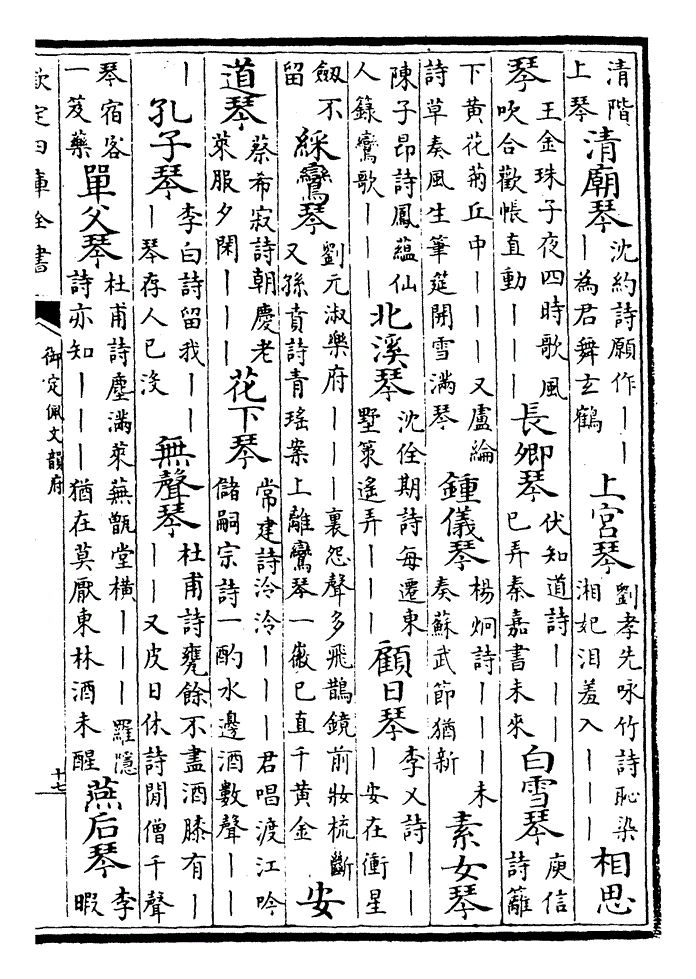 清階上琴 清廟琴 沈約詩願作｜｜｜為君舞玄鶴 上宮琴 劉孝先咏竹詩恥染湘妃泪羞入｜｜｜ 相思
琴 王金珠子夜四時歌風吹合歡帳直動｜｜｜ 長卿琴 伏知道詩｜｜｜已弄秦嘉書未來 白雪琴 庾信詩籬
下黄花菊丘中｜｜｜又盧綸詩草奏風生筆筵開雪滿琴 鍾儀琴 楊炯詩｜｜｜未奏蘇武節猶新 素女琴
陳子昂詩鳳蘊仙人籙鸞歌｜｜｜ 北溪琴 沈佺期詩每遷東墅策遙弄｜｜｜ 顧日琴 李乂詩｜｜｜安在衝星
劔不留 綵鸞琴 劉元淑樂府｜｜｜裏怨聲多飛鵲鏡前妝梳斷又孫蕡詩青瑤案上離鸞琴一徽已直千黄金 安
道琴 蔡希寂詩朝慶老萊服夕閑｜｜｜ 花下琴 常建詩泠泠｜｜｜君唱渡江吟儲嗣宗詩一酌水邊酒數聲｜｜
｜ 孔子琴 李白詩留我｜｜｜琴存人已沒 無聲琴 杜甫詩甕餘不盡酒膝有｜｜｜又皮日休詩閒僧千聲
琴宿客一笈藥 單父琴 杜甫詩塵滿萊蕪甑堂橫｜｜｜羅隱詩亦知｜｜｜猶在莫厭東林酒未醒 燕后琴 李暇
欽定四庫全書 御定佩文韻府 十七